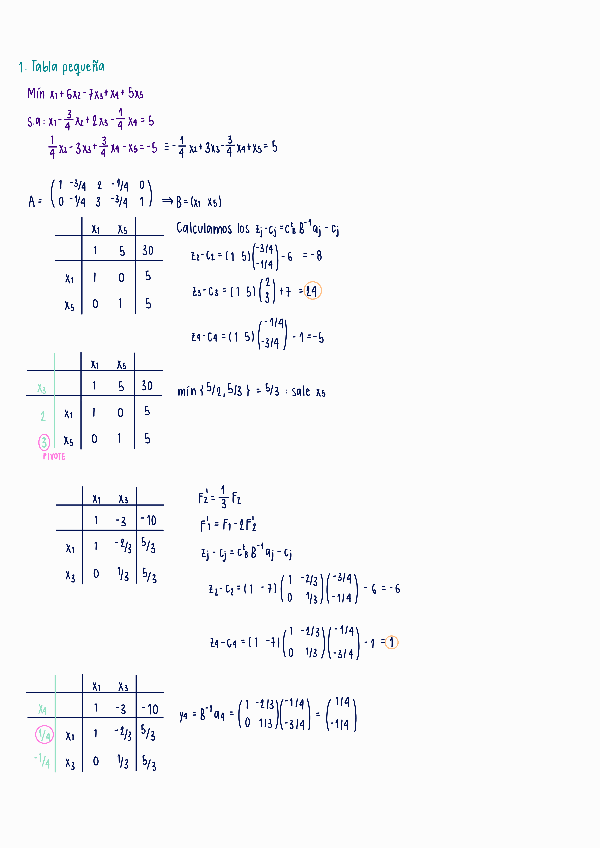 1. Tabla pequeña
Mín x₁+6x₂-7x₃+x₄+5x₅
s.a: x₁-3/4 x₂+2x₃-1/4 x₄=5
1/4 x₂-3x₃+3/4 x₄-x₅=-5 ≡ -1/4 x₂+3x₃-3/4 x₄+x₅=5
A = (1 -3/4 2 -1/4 0
0 -1/4 3 -3/4 1) ⇒ B=(x₁ x₅)
x₁ x₅
1 5 30
x₁ 1 0 5
x₅ 0 1 5
Calculamos los zj-cj=cᵗB B⁻¹aj-cj
z₂-c₂=(1 5)(-3/4 -1/4)-6 =-8
z₃-c₃=(1 5)(2 3)+7 =24
z₄-c₄=(1 5)(-1/4 -3/4)-1=-5
x₁ x₅
x₃ 1 5 30
2 x₁ 1 0 5
3 x₅ 0 1 5
PIVOTE
mín {5/2, 5/3} = 5/3 : sale x₅
x₁ x₃
1 -3 -10
x₁ 1 -2/3 5/3
x₃ 0 1/3 5/3
F₂'=1/3 F₂
F₁'=F₁-2F₂'
zj-cj=cᵗB B⁻¹aj-cj
z₂-c₂=(1 -7)(1 -2/3 0 1/3)(-3/4 -1/4)-6=-6
z₄-c₄=(1 -7)(1 -2/3 0 1/3)(-1/4 -3/4)-1=1
x₁ x₃
x₄ 1 -3 -10
1/4 x₁ 1 -2/3 5/3
-1/4 x₃ 0 1/3 5/3
y₄=B⁻¹a₄=(1 -2/3 0 1/3)(-1/4 -3/4)=(1/4 -1/4)